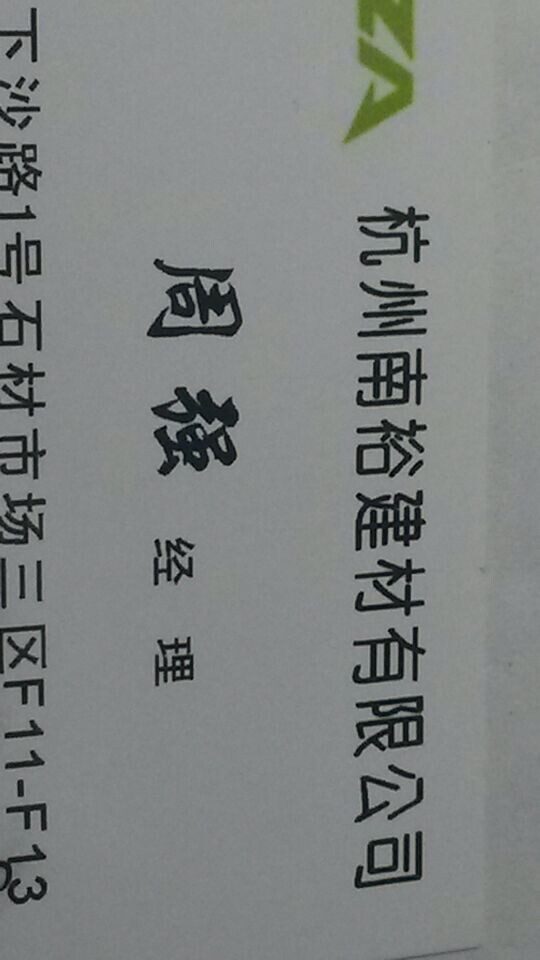 ZA
杭州南裕建材有限公司
周强 经理
下沙路1号石材市场三区F11-F13